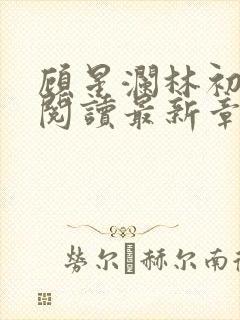 顾星瀾林初
閱讀最新章
勞尔赫尔南